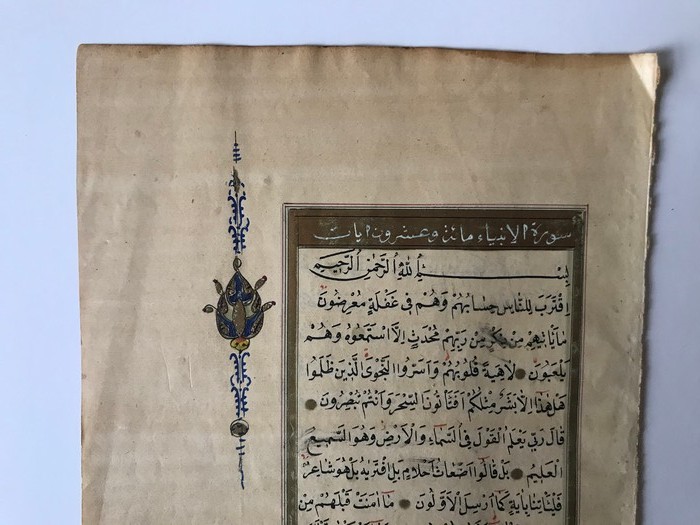 سورة الانبياء مائة وعشرون ايات
بِسْمِ اللّٰهِ الرَّحْمٰنِ الرَّحِيمِ
اِقْتَرَبَ لِلنَّاسِ حِسَابُهُمْ وَهُمْ فِي غَفْلَةٍ مُعْرِضُونَ
مَا يَأْتِيهِمْ مِنْ ذِكْرٍ مِنْ رَبِّهِمْ مُحْدَثٍ اِلَّا اسْتَمَعُوهُ وَهُمْ
يَلْعَبُونَ لَاهِيَةً قُلُوبُهُمْ وَاَسَرُّوا النَّجْوَى الَّذِينَ ظَلَمُوا
هَلْ هٰذَا اِلَّا بَشَرٌ مِثْلُكُمْ اَفَتَأْتُونَ السِّحْرَ وَاَنْتُمْ تُبْصِرُونَ
قَالَ رَبِّي يَعْلَمُ الْقَوْلَ فِي السَّمَاءِ وَالْاَرْضِ وَهُوَ السَّمِيعُ
الْعَلِيمُ بَلْ قَالُوا اَضْغَاثُ اَحْلَامٍ بَلِ افْتَرٰيهُ بَلْ هُوَ شَاعِرٌ
فَلْيَأْتِنَا بِاٰيَةٍ كَمَا اُرْسِلَ الْاَوَّلُونَ مَا اٰمَنَتْ قَبْلَهُمْ مِنْ